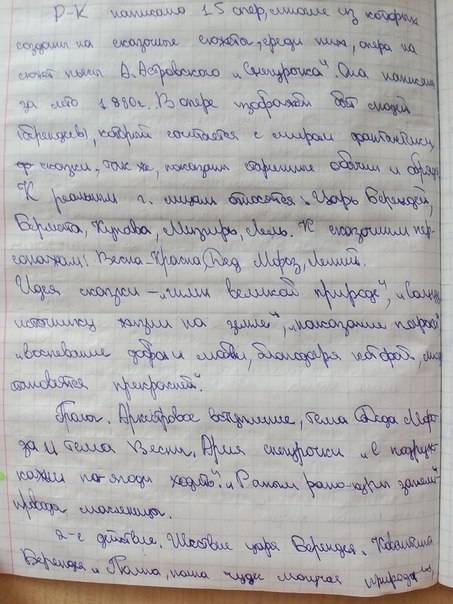 Р-К написано 15 опер, многие из которых
созданы на сказочные сюжеты, среди них, опера на
сюжет пьесы А. Островского „Снегурочка". Она написана
за лето 1880г. В опере изображён быт людей
(берендеев), который сочетается с миром фантастики,
сказки, так же, показаны старинные обычаи и обряды.
К реальным г. лицам относятся: Царь Берендей,
Бермята, Купава, Мизгирь, Лель. К сказочным пер-
сонажам: Весна-Красна, Дед Мороз, Леший.
Идея сказки – „гимн великой природе", „Солнцу
источнику жизни на земле", „
„воспевание добра и любви, благодаря которой, мир
становится прекрасней".
Пролог. Аркестровое вступление, тема Деда Моро-
за и тема Весны. Ария снегурочки „с подруж-
ками по ягоды ходить". „Раным рано куры запели"
проводы масленицы.
2-е действие. Шествие царя Берендея. Каватина
Берендея „Полна, полна чудес могучая природа",